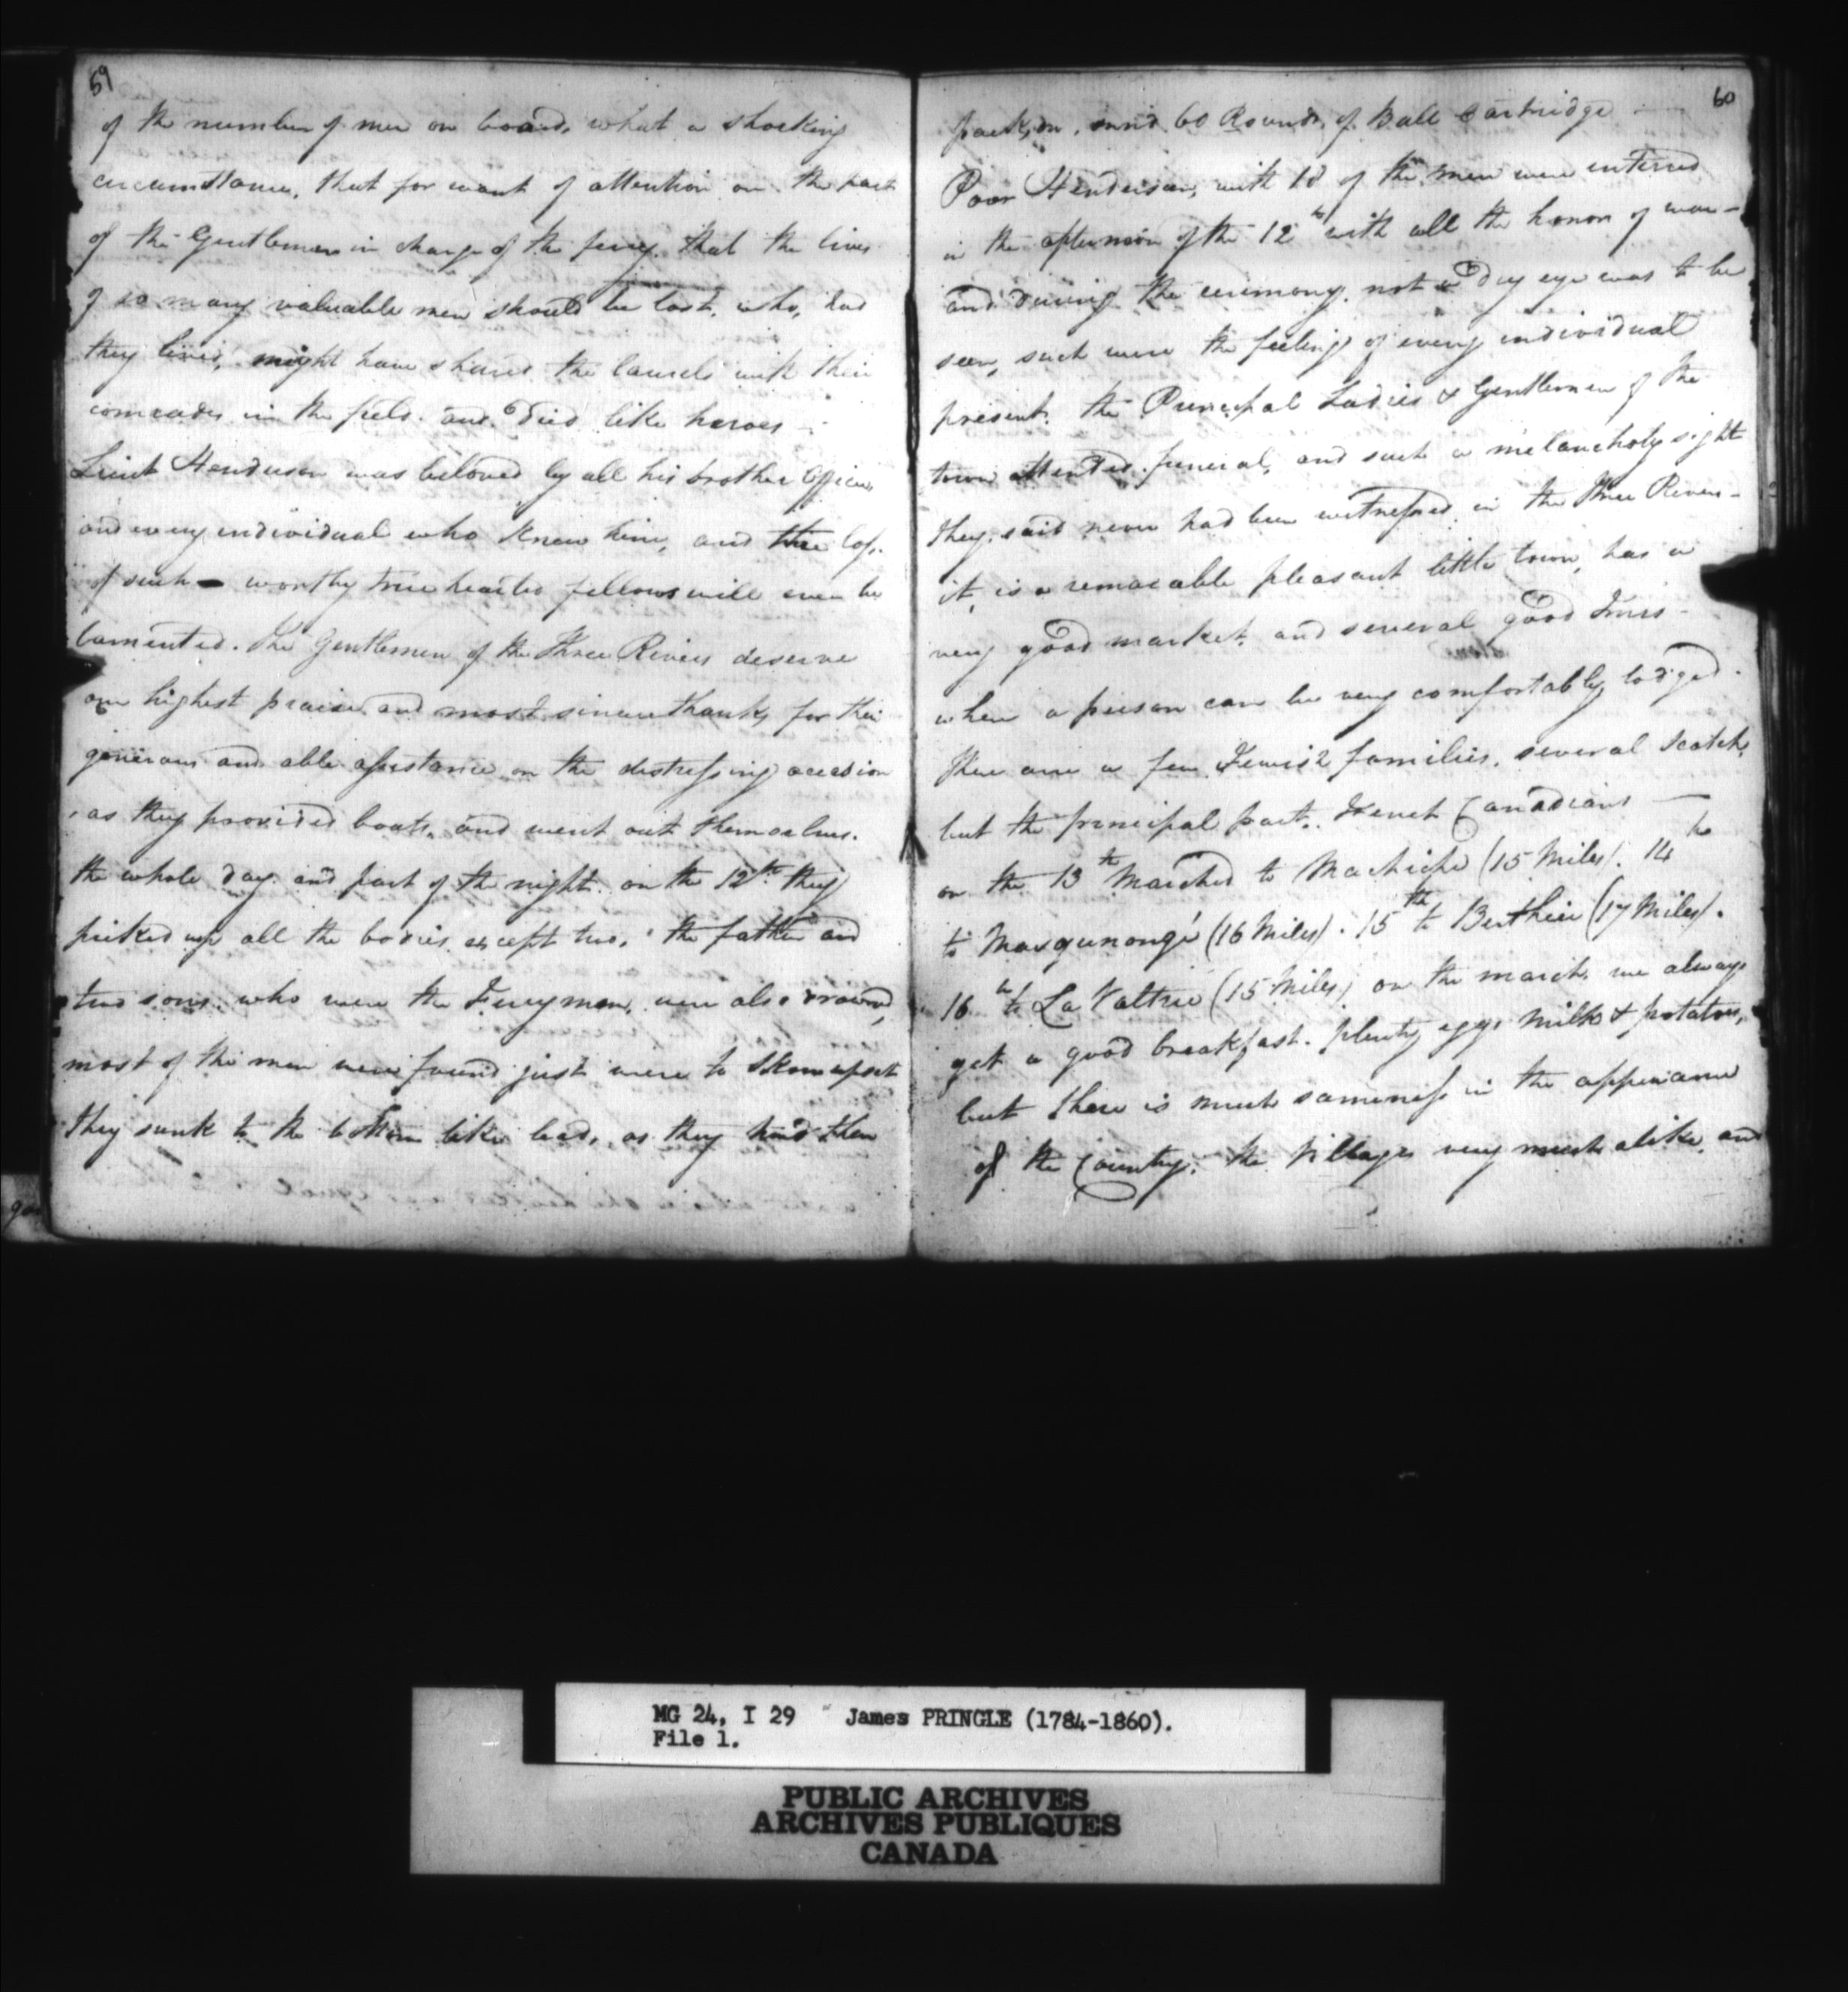 59
of the number of men on board, what a shocking
circumstance, that for want of attention on the part
of the Gentleman in charge of the ferry. that the lives
of so many valuable men should be lost, who, had
they lived, might have shared the laurels with their
comrades in the field. and died like heroes -
Lieut Henderson was beloved by all his brother Officers
and every individual who knew him, and the loss
of such worthy true hearted fellows will ever be
lamented. The Gentlemen of the Three Rivers deserve
our highest praise and most sincere thanks for their
generous and able assistance on the distressing occasion
as they provided boats, and went out themselves.
the whole day and part of the night. on the 12th they
picked up all the bodies except two. the father and
two sons. who were the Ferrymen, were also drowned,
most of the men were found just were to upset
they sunk to the bottom like lead, as they had then
60
packs on, and 60 Rounds of Ball Cartridge
Poor Henderson, with 18 of the men were interred
in the afternoon of the 12th with all the honors of war -
and during the ceremony. not a dry eye was to be
seen, such were the feelings of every individual
present. the Principal Ladies & Gentlemen of the
town attended funeral, and such a melancholy sight
they said never had been witnessed in the Three Rivers -
it is a remarable pleasant little town, has a
very good market and several good Inns -
where a person can be very comfortably lodged.
There are a few Jewish families. several Scotch,
but the principal part. French Canadians
on the 13th Marched to Machiche (15 Miles). 14th
to Masqunongé (16 Miles). 15th to Berthier (17 Miles).
16th to La Valtrie (15 Miles) on the march we always
get a good breakfast. plenty eggs milk & potatoes,
but there is much sameness in the appearance
of the Country. the Villages very much alike and
MG 24, I 29 James PRINGLE (1784-1860).
File 1.
PUBLIC ARCHIVES
ARCHIVES PUBLIQUES
CANADA